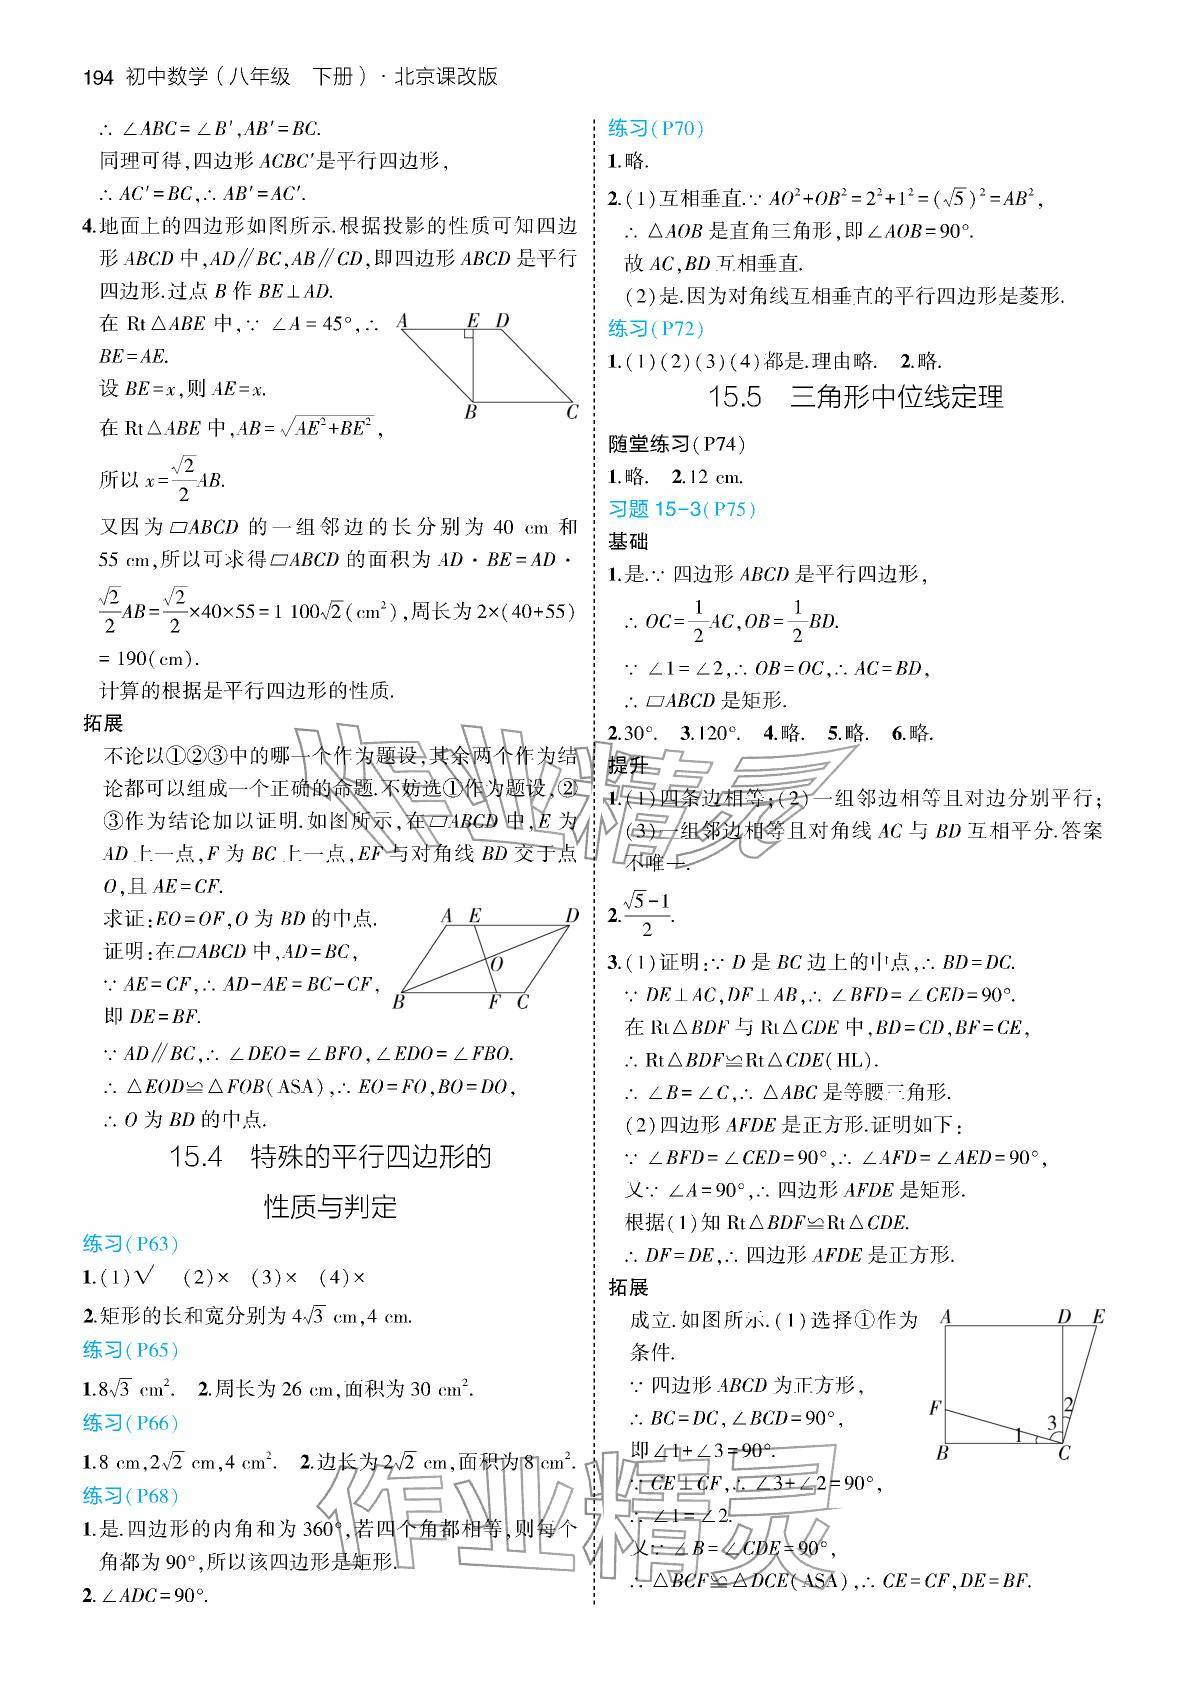 194 初中数学(八年级 下册)·北京课改版
∴ ∠ABC=∠B′,AB′=BC.
同理可得,四边形 ACBC′是平行四边形,
∴ AC′=BC,∴ AB′=AC′.
4.地面上的四边形如图所示.根据投影的性质可知四边
形 ABCD 中,AD∥BC,AB∥CD,即四边形 ABCD 是平行
四边形.过点 B 作 BE⊥AD.
在 Rt△ABE 中,∵ ∠A=45°,∴
BE=AE.
设 BE=x,则 AE=x.
在 Rt△ABE 中,AB=√(AE²+BE²),
所以 x=√2/2 AB.
A E D
B C
又因为▱ABCD 的一组邻边的长分别为 40 cm 和
55 cm,所以可求得▱ABCD 的面积为 AD·BE=AD·
√2/2 AB=√2/2×40×55=1 100√2(cm²),周长为2×(40+55)
=190(cm).
计算的根据是平行四边形的性质.
拓展
不论以①②③中的哪一个作为题设,其余两个作为结
论都可以组成一个正确的命题.不妨选①作为题设,②
③作为结论加以证明.如图所示,在▱ABCD 中,E 为
AD 上一点,F 为 BC 上一点,EF 与对角线 BD 交于点
O,且 AE=CF.
求证:EO=OF,O 为 BD 的中点.
证明:在▱ABCD 中,AD=BC,
∵ AE=CF,∴ AD-AE=BC-CF,
即 DE=BF.
A E D
O
B F C
∵ AD∥BC,∴ ∠DEO=∠BFO,∠EDO=∠FBO.
∴ △EOD≌△FOB(ASA),∴ EO=FO,BO=DO,
∴ O 为 BD 的中点.
15.4 特殊的平行四边形的
性质与判定
练习(P63)
1.(1)√ (2)× (3)× (4)×
2.矩形的长和宽分别为 4√3 cm,4 cm.
练习(P65)
1.8√3 cm². 2.周长为 26 cm,面积为 30 cm².
练习(P66)
1.8 cm,2√2 cm,4 cm². 2.边长为 2√2 cm,面积为 8 cm².
练习(P68)
1.是.四边形的内角和为 360°,若四个角都相等,则每个
角都为 90°,所以该四边形是矩形.
2.∠ADC=90°.
练习(P70)
1.略.
2.(1)互相垂直.∵ AO²+OB²=2²+1²=(√5)²=AB²,
∴ △AOB 是直角三角形,即∠AOB=90°.
故 AC,BD 互相垂直.
(2)是.因为对角线互相垂直的平行四边形是菱形.
练习(P72)
1.(1)(2)(3)(4)都是.理由略. 2.略.
15.5 三角形中位线定理
随堂练习(P74)
1.略. 2.12 cm.
习题 15-3(P75)
基础
1.是.∵ 四边形 ABCD 是平行四边形,
∴ OC=1/2 AC,OB=1/2 BD.
∵ ∠1=∠2,∴ OB=OC,∴ AC=BD,
∴ ▱ABCD 是矩形.
2.30°. 3.120°. 4.略. 5.略. 6.略.
提升
1.(1)四条边相等;(2)一组邻边相等且对边分别平行;
(3)一组邻边相等且对角线 AC 与 BD 互相平分.答案
不唯一.
2.(√5-1)/2.
3.(1)证明:∵ D 是 BC 边上的中点,∴ BD=DC.
∵ DE⊥AC,DF⊥AB,∴ ∠BFD=∠CED=90°.
在 Rt△BDF 与 Rt△CDE 中,BD=CD,BF=CE,
∴ Rt△BDF≌Rt△CDE(HL).
∴ ∠B=∠C,∴ △ABC 是等腰三角形.
(2)四边形 AFDE 是正方形.证明如下:
∵ ∠BFD=∠CED=90°,∴ ∠AFD=∠AED=90°,
又∵ ∠A=90°,∴ 四边形 AFDE 是矩形.
根据(1)知 Rt△BDF≌Rt△CDE.
∴ DF=DE,∴ 四边形 AFDE 是正方形.
拓展
成立.如图所示.(1)选择①作为
条件.
∵ 四边形 ABCD 为正方形,
∴ BC=DC,∠BCD=90°,
即∠1+∠3=90°.
∵ CE⊥CF,∴ ∠3+∠2=90°,
∴ ∠1=∠2.
又∵ ∠B=∠CDE=90°,
∴ △BCF≌△DCE(ASA),∴ CE=CF,DE=BF.
A D E
F 2
3
1
B C
作业精灵
作业精灵